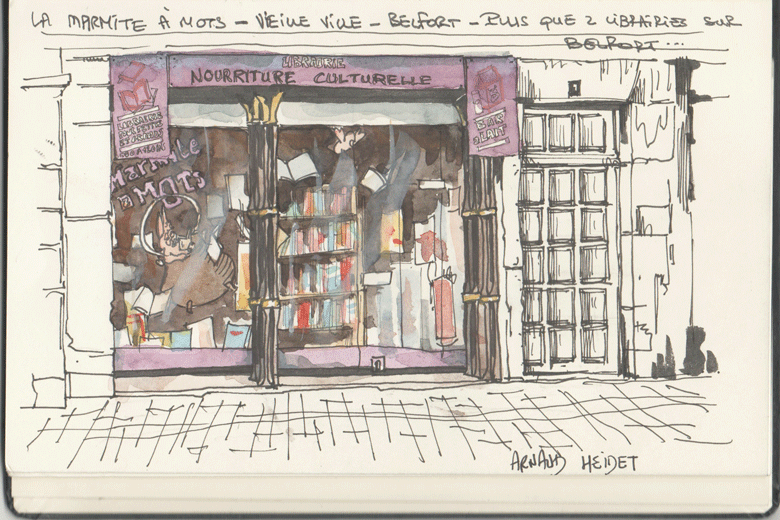 LA MARMITE À MOTS – VIEILLE VILLE – BELFORT – PLUS QUE 2 LIBRAIRIES SUR
BELFORT...
LIBRAIRIE
NOURRITURE CULTURELLE
MarmiTe
à MOTS
ARNAUD HEIDET